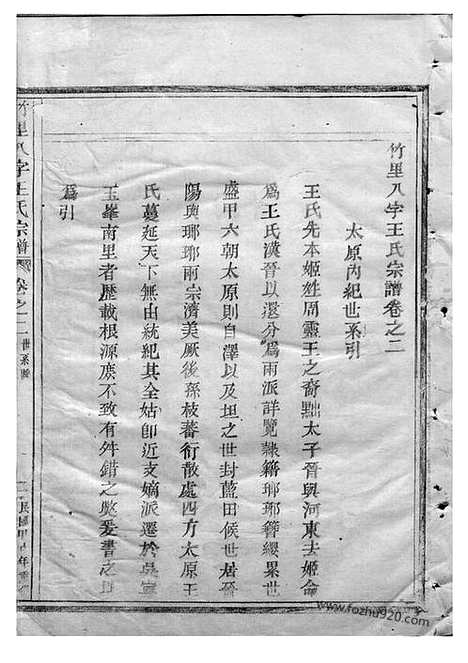 竹里八字王氏宗譜卷之二
太原內紀世系引
王氏先本姬姓周靈王之裔黜太子晉與河東去姬命
為王氏漢晉以還分為兩派詳覽隸籍瑯琊簪纓累世
盛甲六朝太原則自澤以及坦之世封藍田侯世居晉
陽與瑯琊兩宗濟美厥後孫枝蕃衍散處四方太原王
氏蔓延天下無由統紀其全姑即近支嫡派遷於吳
玉峯南里者歷載根源庶不致有舛錯之爰書之
為引
竹里八字王氏宗譜 卷之二 世系圖 二 民國甲年
www.fozhu920.com